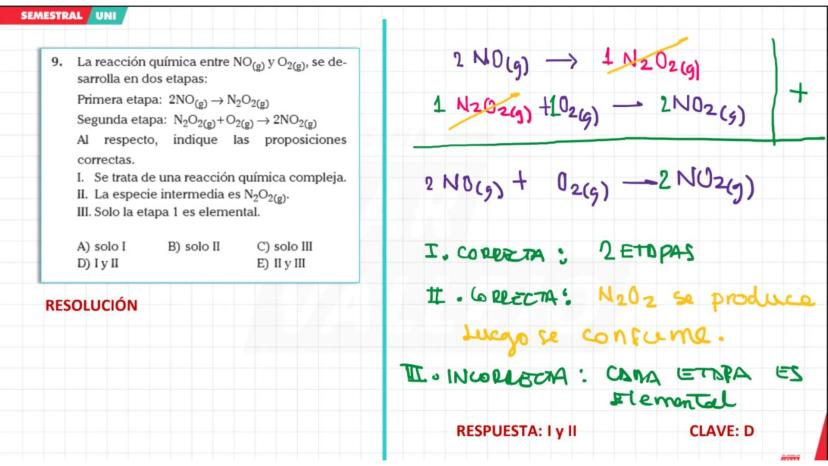 SEMESTRAL UNI
9. La reacción química entre NO(g) y O2(g), se de-
sarrolla en dos etapas:
Primera etapa: 2NO(g) → N2O2(g)
Segunda etapa: N2O2(g)+O2(g) → 2NO2(g)
Al respecto, indique las proposiciones
correctas.
I. Se trata de una reacción química compleja.
II. La especie intermedia es N2O2(g).
III. Solo la etapa 1 es elemental.
A) solo I B) solo II C) solo III
D) I y II E) II y III
RESOLUCIÓN
2 NO(g) → 1 N2O2(g)
1 N2O2(g) +1O2(g) → 2NO2(g) +
2 NO(g) + O2(g) → 2 NO2(g)
I. CORRECTA : 2 ETAPAS
II. CORRECTA: N2O2 se produce
luego se consume.
III. INCORRECTA : CADA ETAPA ES
Elemental
RESPUESTA: I y II CLAVE: D